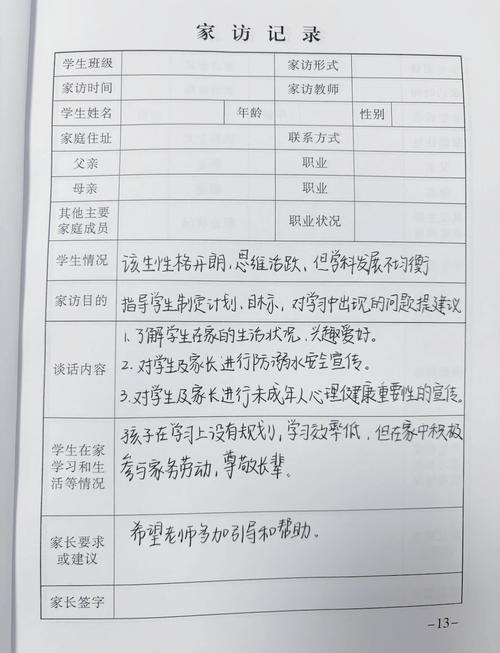 家访记录
学生班级 家访形式
家访时间 家访教师
学生姓名 年龄 性别
家庭住址 联系方式
父亲 职业
母亲 职业
其他主要
家庭成员 职业状况
学生情况 该生性格开朗，思维活跃，但学科发展不均衡
家访目的 指导学生制定计划，目标，对学习中出现的问题提建议
谈话内容
1. 了解学生在家的生活状况，兴趣爱好。
2. 对学生及家长进行防溺水安全宣传。
3. 对学生及家长进行未成年人心理健康重要性的宣传。
学生在家
学习和生
活等情况
孩子在学习上没有规划，学习效率低，但在家中积极
参与家务劳动，尊敬长辈。
家长要求
或建议
希望老师多加引导和帮助。
家长签字
-13-